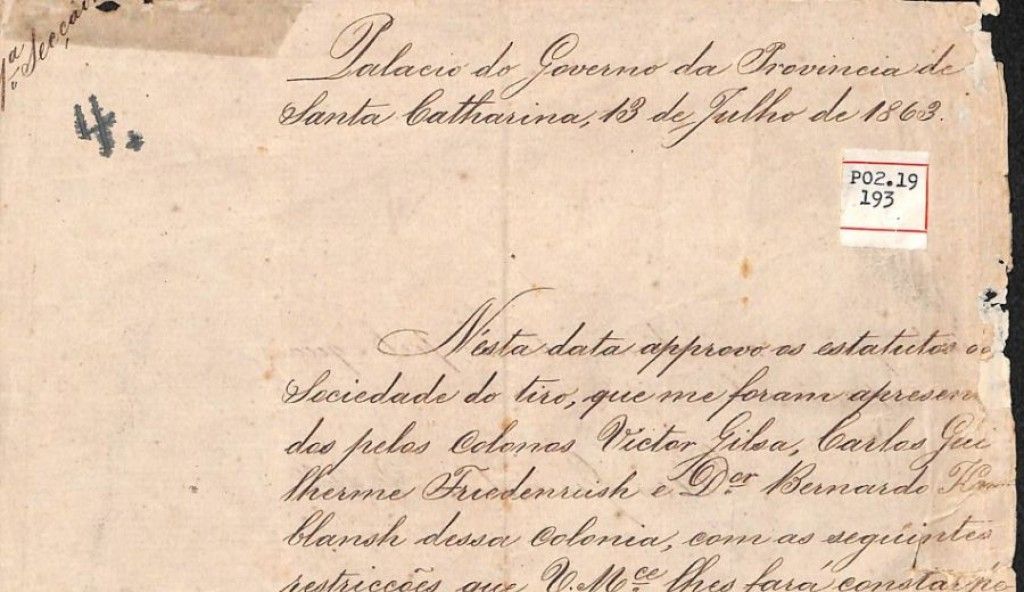 1ª Secção
4.
Palacio do Governo da Provincia de
Santa Catharina, 13 de Julho de 1863.
PO2.19
193
Nésta data approvo os estatutos
Sociedade do tiro, que me foram apresen
dos pelos colonos Victor Gilsa, Carlos Gui
lherme Friedenreish e Dor. Bernardo
blansh dessa colonia, com as seguintes
restricções que V. Mce. lhes fará constar